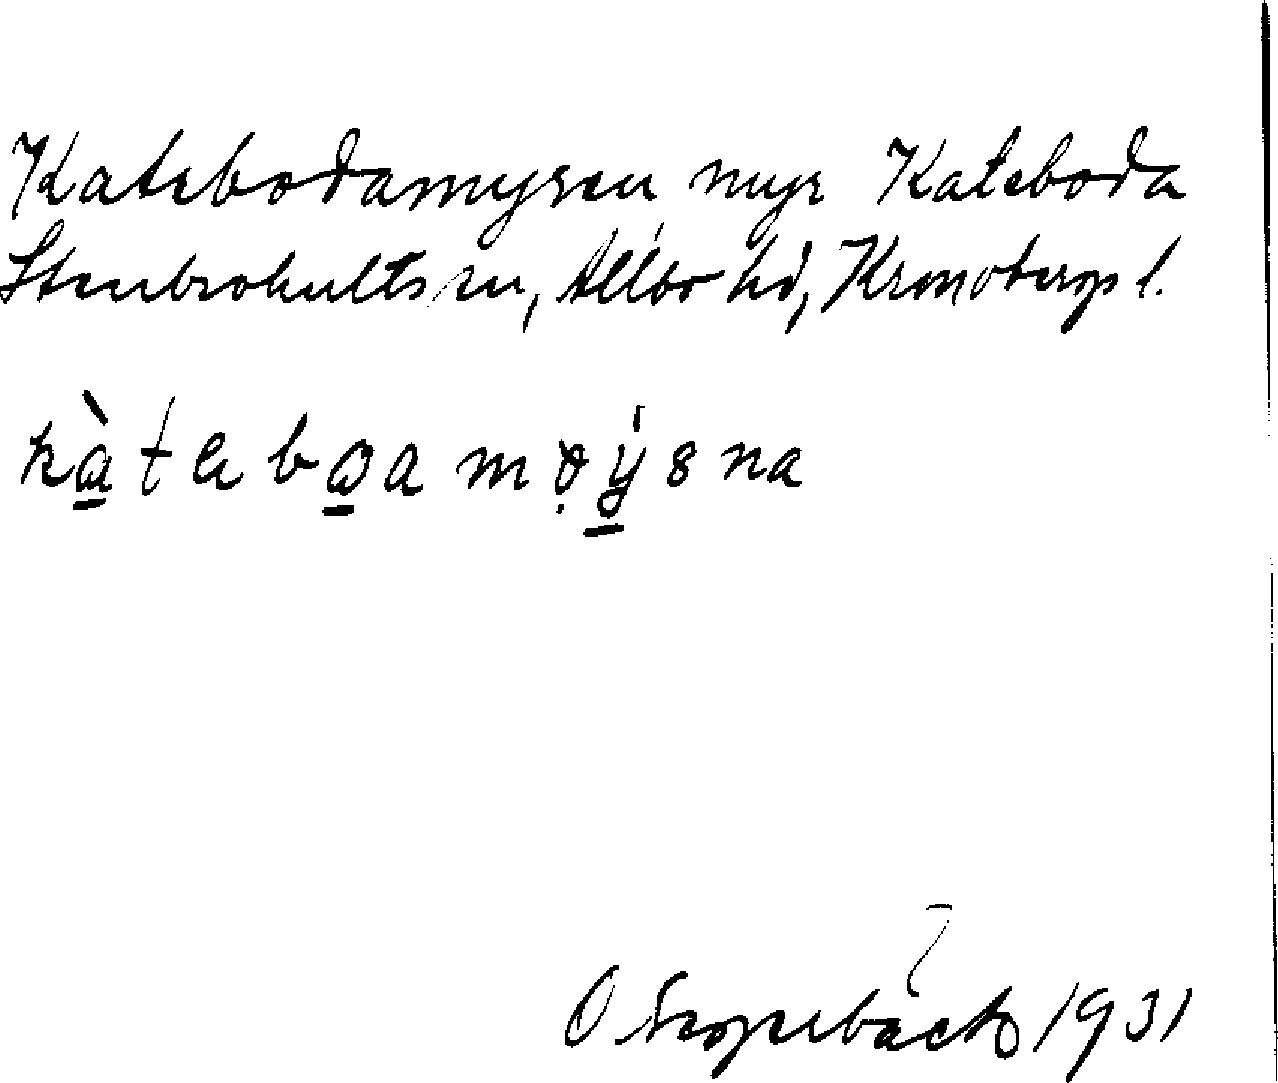 Katebodamyren myr Kateboda
Stenbrohults sn, Allbo hd, Kronobergs l.
kàteboa møýsna
O Skogsbäck 1931